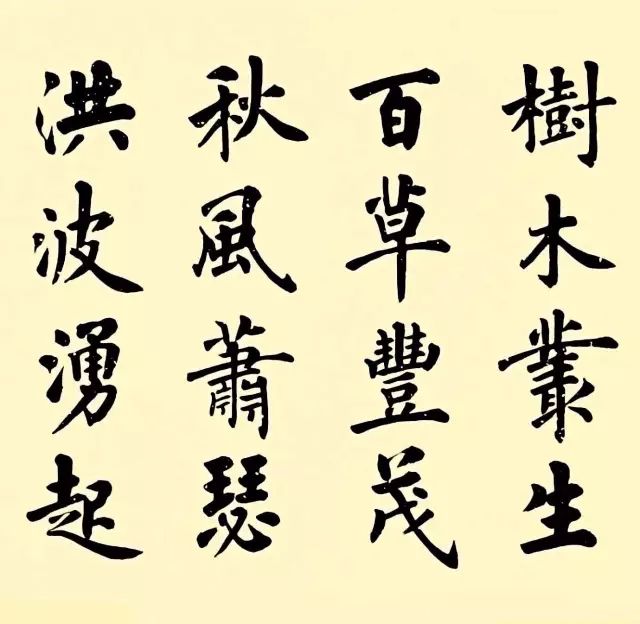 樹木叢生
百草豐茂
秋風蕭瑟
洪波湧起